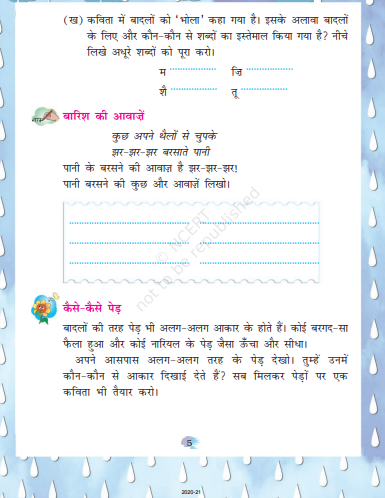 (ख) कविता में बादलों को ‘भोला’ कहा गया है। इसके अलावा बादलों
के लिए और कौन-कौन से शब्दों का इस्तेमाल किया गया है? नीचे
लिखे अधूरे शब्दों को पूरा करो।
म .................. ज़ि ..................
शै .................. तू ..................
बारिश की आवाज़ें
कुछ अपने थैलों से चुपके
झर-झर-झर बरसाते पानी
पानी के बरसने की आवाज़ है झर-झर-झर!
पानी बरसने की कुछ और आवाज़ें लिखो।
© NCERT
not to be republished
कैसे-कैसे पेड़
बादलों की तरह पेड़ भी अलग-अलग आकार के होते हैं। कोई बरगद-सा
फैला हुआ और कोई नारियल के पेड़ जैसा ऊँचा और सीधा।
अपने आसपास अलग-अलग तरह के पेड़ देखो। तुम्हें उनमें
कौन-कौन से आकार दिखाई देते हैं? सब मिलकर पेड़ों पर एक
कविता भी तैयार करो।
5
2020-21